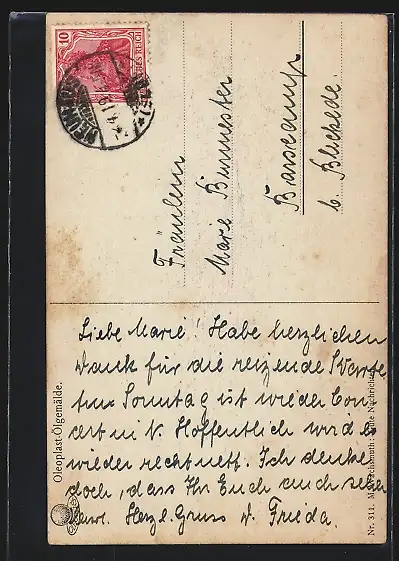 10
DEUTSCHES REICH
Fräulein
Marie Burmester
Barscamp
b. Bleckede.
Liebe Marie! Habe herzlichen
Dank für die reizende Karte
Sonntag ist wieder Con-
cert in N. Hoffentlich wird es
wieder recht nett. Ich denke
doch, dass Ihr Euch auch sehen
Herzl. Gruss v. Frieda.
Oleoplast-Ölgemälde.
Nr. 311. Nachrichten